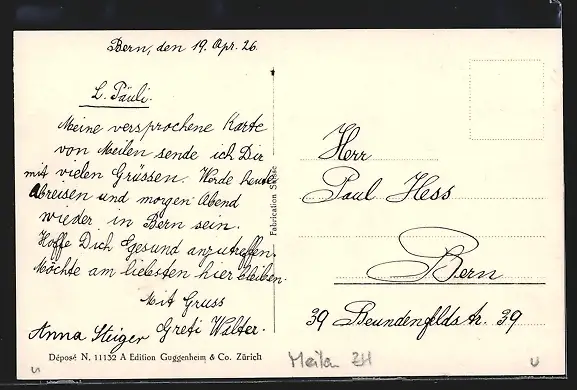 Bern, den 19. Apr. 26.
L. Päuli.
Meine versprochene Karte
von Meilen sende ich Dir
mit vielen Grüssen. Werde heute
Abreisen und morgen Abend
wieder in Bern sein.
Hoffe Dich Gesund anzutreffen.
Möchte am liebsten hier bleiben.
Mit Gruss
Anna Steiger Greti Walter.
Déposé N. 11132 A Edition Guggenheim & Co. Zürich
Fabrication Suisse
Herr
Paul Hess
Bern
39 Beundenfeldstr. 39
Meilen ZH